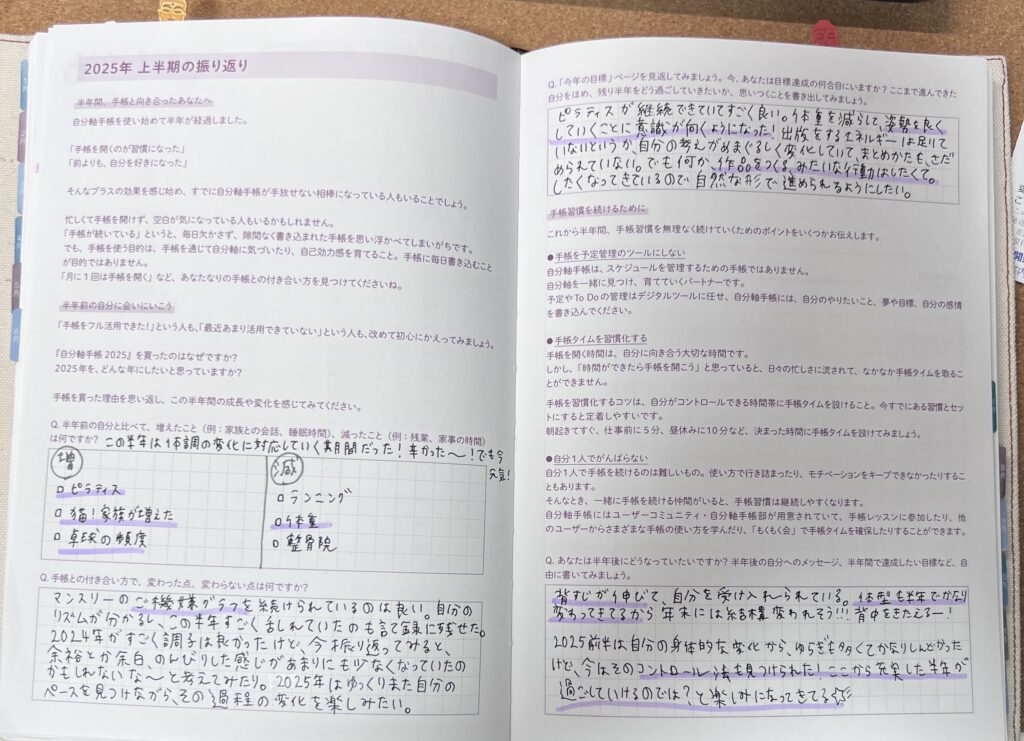 2025年 上半期の振り返り
半年間、手帳と向き合ったあなたへ
自分軸手帳を使い始めて半年が経過しました。
「手帳を開くのが習慣になった」
「前よりも、自分を好きになった」
そんなプラスの効果を感じ始め、すでに自分軸手帳が手放せない相棒になっている人もいることでしょう。
忙しくて手帳を開けず、空白が気になっている人もいるかもしれません。
「手帳が続いている」というと、毎日欠かさず、隙間なく書き込まれた手帳を思い浮かべてしまいがちです。
でも、手帳を使う目的は、手帳を通じて自分軸に気づいたり、自己効力感を育てること。手帳に毎日書き込むこと
が目的ではありません。
「月に1回は手帳を開く」など、あなたなりの手帳との付き合い方を見つけてくださいね。
半年前の自分に会いにいこう
「手帳をフル活用できた!」という人も、「最近あまり活用できていない」という人も、改めて初心にかえってみましょう。
『自分軸手帳 2025』を買ったのはなぜですか?
2025年を、どんな年にしたいと思っていますか?
手帳を買った理由を思い返し、この半年間の成長や変化を感じてみてください。
Q. 半年前の自分と比べて、増えたこと(例:家族との会話、睡眠時間)、減ったこと(例:残業、家事の時間)
は何ですか? この半年は体調の変化に対応していく期間だった!辛かった〜!でも今
元気!
増
ピラティス
猫!家族が増えた
卓球の頻度
減
ランニング
体重
整骨院
Q. 手帳との付き合い方で、変わった点、変わらない点は何ですか?
マンスリーのご機嫌グラフを続けられているのは良い。自分の
リズムが分かるし、この半年すごく乱れていたのも記録に残せた。
2024年がすごく調子は良かったけど、今振り返ってみると、
余裕とか余白、のんびりした感じがあまりにも少なくなっていたの
かもしれないな〜と考えてみたり。2025年はゆっくりまた自分の
ペースを見つけながら、その過程の変化を楽しみたい。
Q. 「今年の目標」ページを見返してみましょう。今、あなたは目標達成の何合目にいますか? ここまで進んできた
自分をほめ、残り半年をどう過ごしていきたいか、思いつくことを書き出してみましょう。
ピラティスが継続できていてすごく良い。体重を減らして、姿勢を良く
していくことに意識が向くようになった!出版をするエネルギーは足りて
いないというか、自分の考えがめまぐるしく変化していて、まとめかたも、さだ
められていない。でも何か、作品をつくる、みたいな行動はしたくて。
したくなってきているので自然な形で進められるようにしたい。
手帳習慣を続けるために
これから半年間、手帳習慣を無理なく続けていくためのポイントをいくつかお伝えします。
●手帳を予定管理のツールにしない
自分軸手帳は、スケジュールを管理するための手帳ではありません。
自分軸を一緒に見つけ、育てていくパートナーです。
予定や To Do の管理はデジタルツールに任せ、自分軸手帳には、自分のやりたいこと、夢や目標、自分の感情
を書き込んでください。
●手帳タイムを習慣化する
手帳を開く時間は、自分に向き合う大切な時間です。
しかし、「時間ができたら手帳を開こう」と思っていると、日々の忙しさに流されて、なかなか手帳タイムを取るこ
とができません。
手帳を習慣化するコツは、自分がコントロールできる時間帯に手帳タイムを設けること。今すでにある習慣とセッ
トにすると定着しやすいです。
朝起きてすぐ、仕事前に5分、昼休みに10分など、決まった時間に手帳タイムを設けてみましょう。
●自分1人でがんばらない
自分1人で手帳を続けるのは難しいもの。使い方で行き詰まったり、モチベーションをキープできなかったりするこ
ともあります。
そんなとき、一緒に手帳を続ける仲間がいると、手帳習慣は継続しやすくなります。
自分軸手帳にはユーザーコミュニティ・自分軸手帳部が用意されていて、手帳レッスンに参加したり、他
のユーザーからさまざまな手帳の使い方を学んだり、「もくもく会」で手帳タイムを確保したりすることができます。
Q. あなたは半年後にどうなっていたいですか? 半年後の自分へのメッセージ、半年間で達成したい目標など、自
由に書いてみましょう。
背すじが伸びて、自分を受け入れられている。体型も半年でかなり
変わってきてるから年末には結構変われそう!!!背中をきたえるー!
2025前半は自分の身体的な変化から、ゆらぎも多くてかなりしんどかった
けど、今はそのコントロール法も見つけられた!ここから充実した半年が
過ごしていけるのでは?と楽しみになってきてる☆